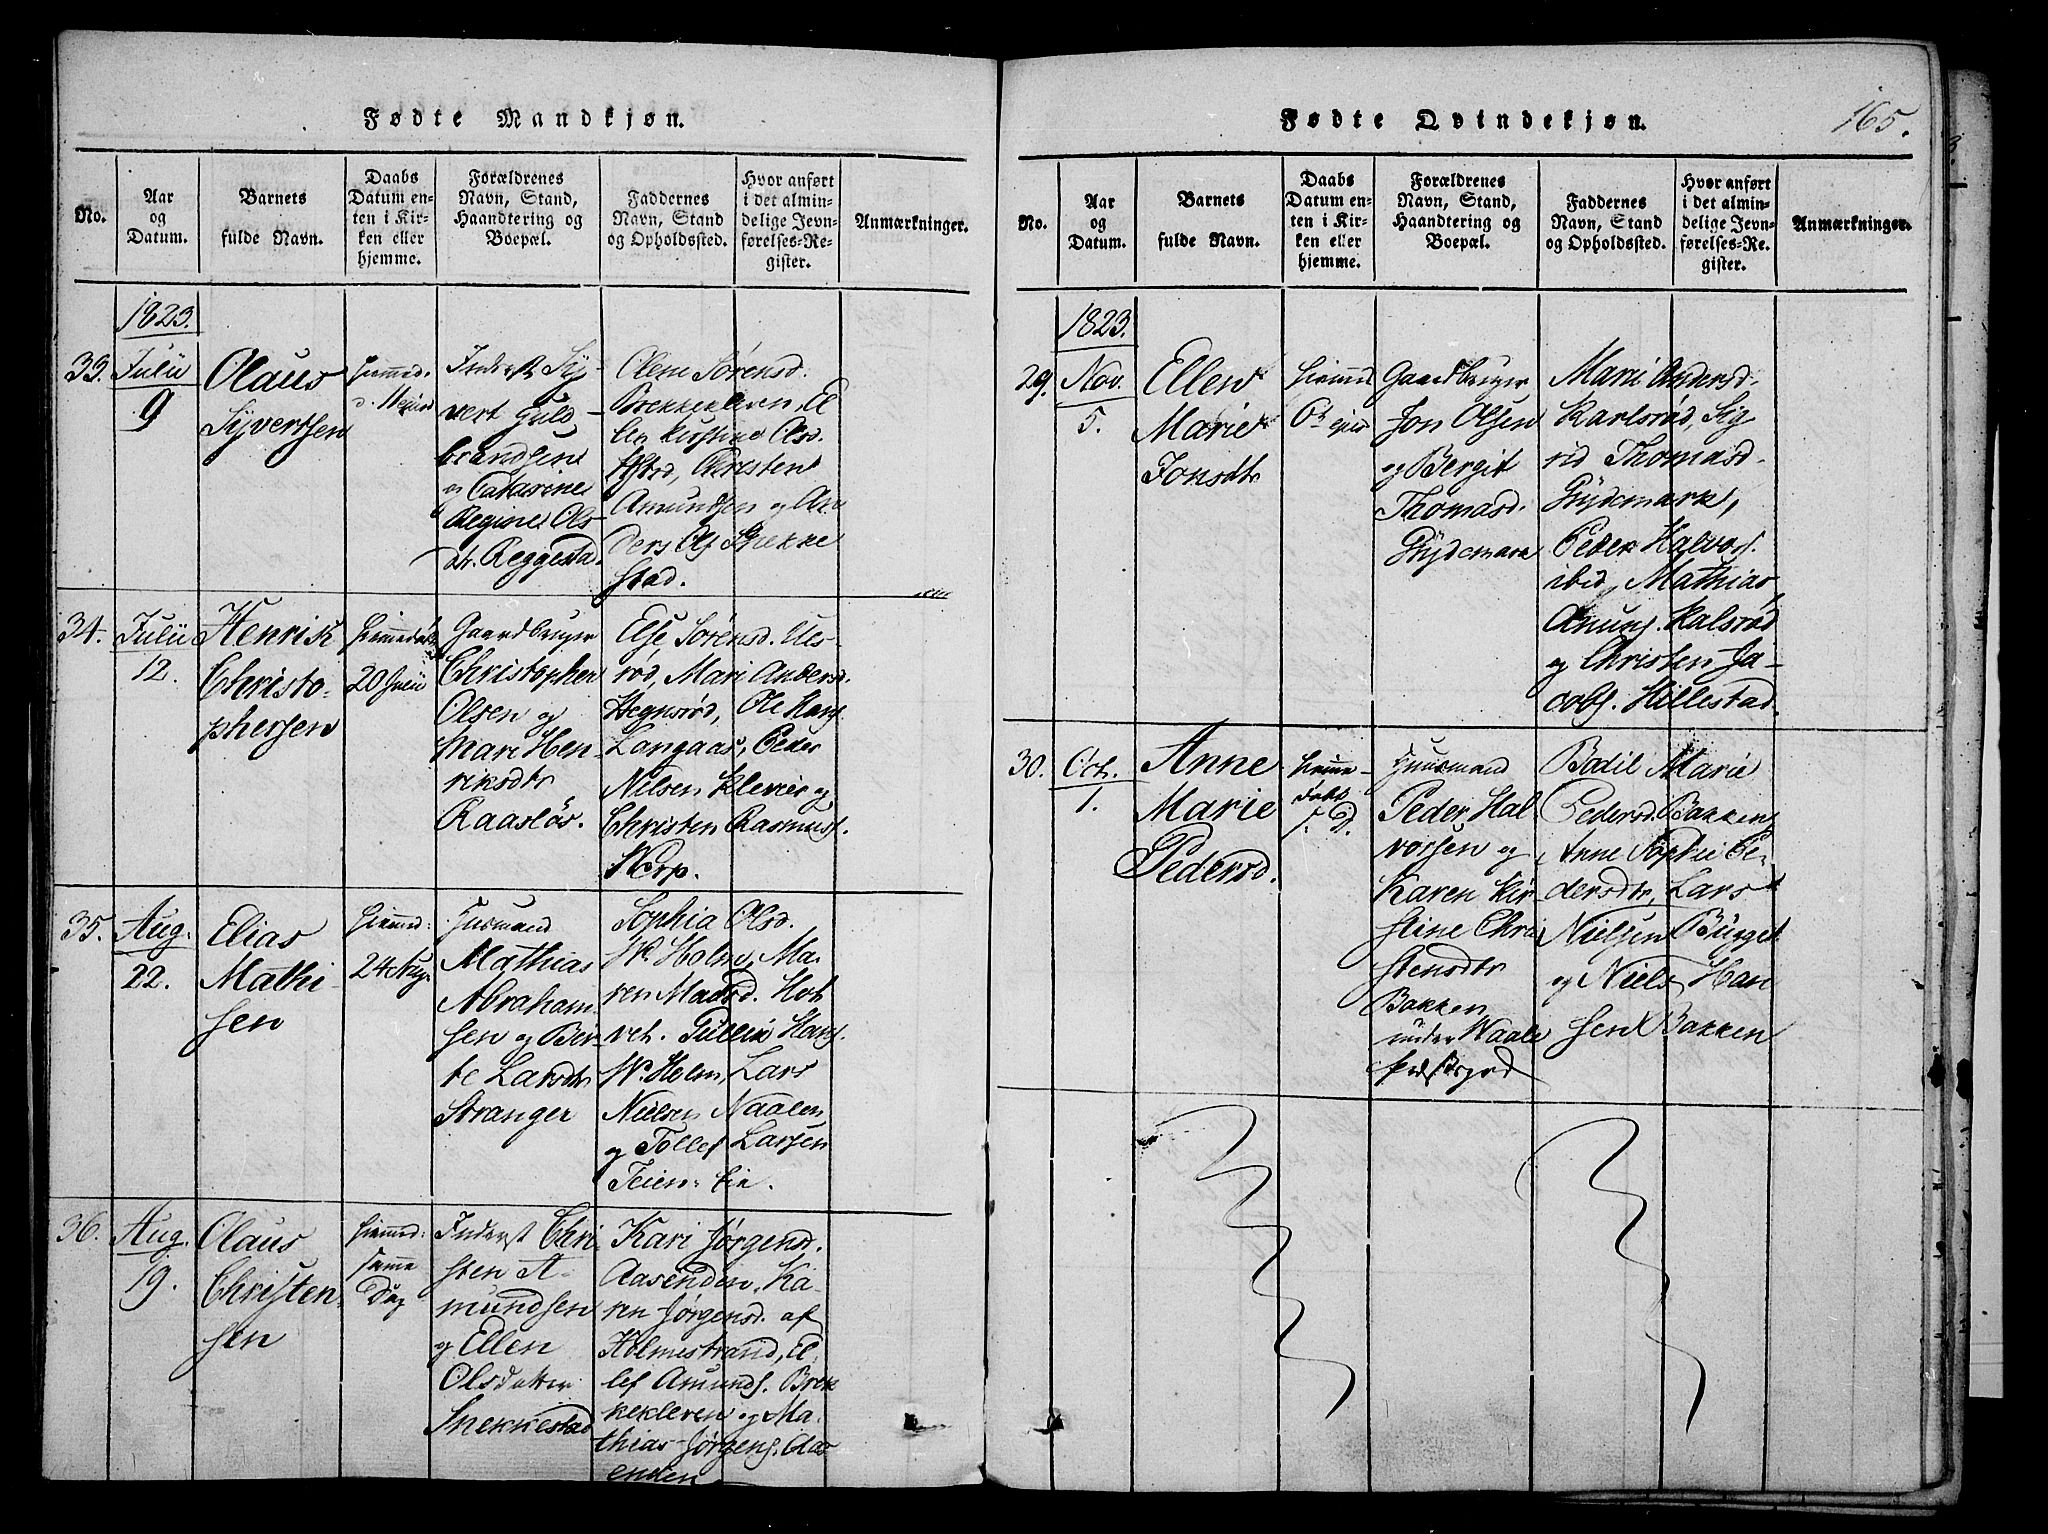 Fødte Mandkjøn.
No.
Aar
og
Datum.
Barnets
fulde Navn.
Daabs
Datum en-
ten i Kir-
ken eller
hjemme.
Forældrenes
Navn, Stand,
Haandtering og
Boepæl.
Faddernes
Navn, Stand
og Opholdssted.
Hvor anført
i det almin-
delige Jevn-
førelses-Re-
gister.
Anmærkninger.
33.
1823.
Julii
9
Olaus
Syvertsen
hjemmed.
Inderst Sy-
vert Guld-
brandsen
og Catarine
Regine Ols-
dt. Reggesta.
Olene Sørensd.
Brekkekleven, El
len Kirstine Olsd.
Christen
Amundsen og An
ders Ols Snekke
stad.
34.
Julii
12.
Henrik
Christo-
phersen
hjemmedøbt
20 Julii
Gaardbruger
Christopher
Olsen og
Mari Hen-
riksdtr
Raasløs.
Else Sørensd. Ues-
rød, Mari Andersd.
Hegnsrød, Ole Hans.
Langaas, Peder
Nilsen Klevier og
Christen Rasmuss.
Werp.
35.
Aug.
22.
Elias
Mathi-
sen
hjemmd:
24 Aug.
Husmand
Mathias
Abraham-
sen og Bir-
te Larsdtr
Stranger
Sophia Olsd.
W. Holm, Ma-
ren Madsd. Hot
vet. Tullik Hans.
W. Holm, Lars
Nielsen Naalen
og Tollef Larsen
36.
Aug.
19.
Olaus
Christen-
sen
hjemmd:
samme
Dag
Inderst Chri-
sten A-
mundsen
og Ellen
Olsdatter
Snekkestad
Kari Jørgensd.
Aasenden, Ka-
ren Jørgensd. af
Holmestrand, El-
lef Amunds. Brek
kekleven og Ma-
thias Jørgens. Aas
enden
Fødte Qvindekjøn.
165.
No.
Aar
og
Datum.
Barnets
fulde Navn.
Daabs
Datum en-
ten i Kir-
ken eller
hjemme.
Forældrenes
Navn, Stand,
Haandtering og
Boepæl.
Faddernes
Navn, Stand
og Opholdssted.
Hvor anført
i det almin-
delige Jevn-
førelses-Re-
gister.
Anmærkninger.
29.
1823.
Nov.
5.
Ellen
Marie
Jonsdtr
hjemmd
Gaardbruger
Jon Olsen
og Bergit
Thomasd.
Rydemark
Mari Andersd.
Karlsrød, Sig
rid Thomasd.
Rydemark,
Peder Halvors.
ibid, Mathias
Amuns. Kalsrød
og Christen Ja-
cobs. Hillestad.
30.
Oct.
1.
Anne
Marie
Pedersd.
hjemme-
døbt
s. D.
Huusmand
Peder Hal
vorsen og
Karen Kir
stine Chri
stensdtr
Bakken
under Waale
Bodil Marie
Pedersd. Bakken,
Anne Sophie Pe-
dersdtr, Lars
Nielsen Burget
og Niels Han
sen Bakken